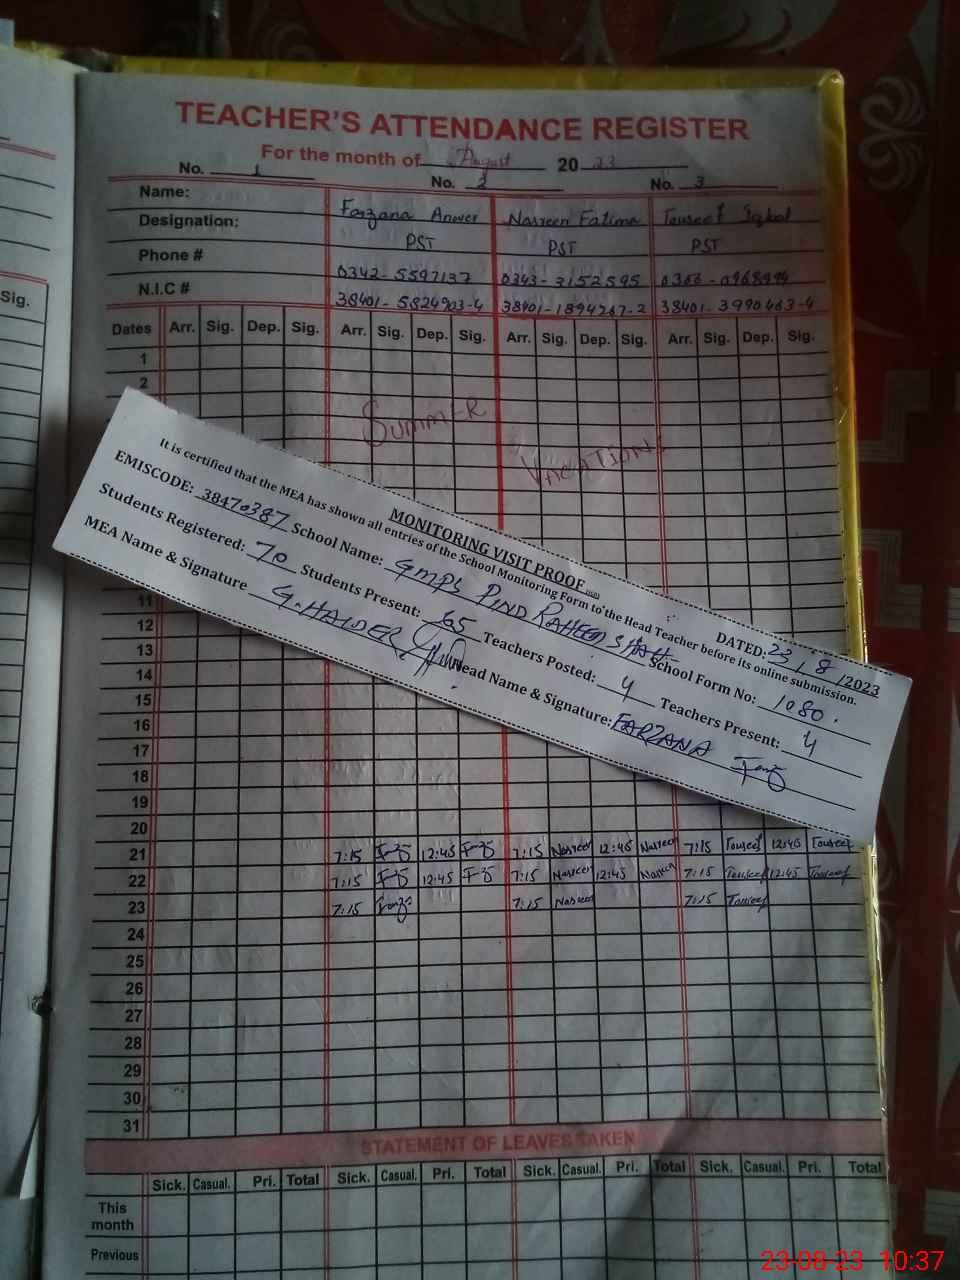 TEACHER'S ATTENDANCE REGISTER
For the month of August 2023
No. 1 No. 2 No. 3
Name: Farzana Anwer Nasreen Fatima Touseef Iqbal
Designation: PST PST PST
Phone # 0342-5597137 0343-3152595
N.I.C # 38401-5824903-4 38401-1894267-2 38401-3990463-4
Dates Arr. Sig. Dep. Sig. Arr. Sig. Dep. Sig. Arr. Sig. Dep. Sig. Arr. Sig. Dep. Sig.
1
2
SUMMER
VACATIONS
MONITORING VISIT PROOF
DATED: 23/8/2023
It is certified that the MEA has shown all entries of the School Monitoring Form to the Head Teacher before its online submission.
EMISCODE: 38470387 School Name: GMPS PIND RAHEEM SHAH School Form No: 1080.
Students Registered: 70 Students Present: 65 Teachers Posted: 4 Teachers Present: 4
MEA Name & Signature G.HAIDER Head Name & Signature: FARZANA
11
12
13
14
15
16
17
18
19
20
21 7:15 12:45 7:15 Nasreen 12:45 Nasreen 7:15 Touseef 12:45 Touseef
22 7:15 12:45 7:15 Nasreen 12:45 Nasreen 7:15 Touseef 12:45 Touseef
23 7:15 7:15 Nasreen 7:15 Touseef
24
25
26
27
28
29
30
31
STATEMENT OF LEAVES TAKEN
Sick. Casual. Pri. Total Sick. Casual. Pri. Total Sick. Casual. Pri. Total Sick. Casual. Pri. Total
This
month
Previous
Sig.
23-08-23 10:37